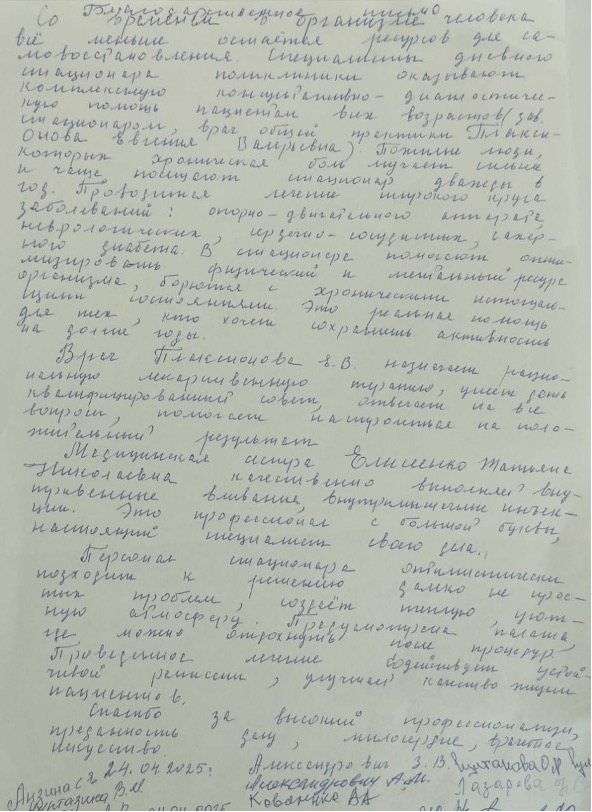 Благодарственное письмо
Со временем в организме человека
всё меньше остаётся ресурсов для са-
мовосстановления. Специалисты дневного
стационара поликлиники оказывают
комплексную консультативно-диагностичес-
кую помощь пациентам всех возрастов (зав.
стационаром, врач общей практики Плакси-
онова Евгения Валерьевна). Пожилые люди,
которых хроническая боль мучает сильнее
и чаще посещают стационар дважды в
год. Проводится лечение широкого круга
заболеваний: опорно-двигательного аппарата,
неврологических, сердечно-сосудистых, сахар-
ного диабета. В стационаре помогают опти-
мизировать физический и ментальный ресурс
организма, борются с хроническими истощаю-
щими состояниями. Это реальная помощь
для тех, кто хочет сохранить активность
на долгие годы.
Врач Плаксионова Е.В. назначает рацио-
нальную лекарственную терапию, умеет дать
квалифицированный совет, отвечает на все
вопросы, помогает настроиться на поло-
жительный результат
Медицинская сестра Елисеенко Татьяна
Николаевна качественно выполняет вну-
тривенные вливания, внутримышечные инъек-
ции. Это профессионал с большой буквы,
настоящий специалист своего дела.
Персонал стационара оптимистически
подходит к решению далеко не прос-
тых проблем, создаёт теплую, уют-
ную атмосферу. Предусмотрена палата,
где можно отдохнуть после процедур.
Проведенное лечение содействует устой-
чивой ремиссии, улучшает качество жизни
пациентов.
Спасибо за высокий профессионализм,
преданность делу, милосердие, врачебное
искусство.
24.04.2025г. Александрович З.В.
Александрович А.И. Лазарева
Коваленко В.А.